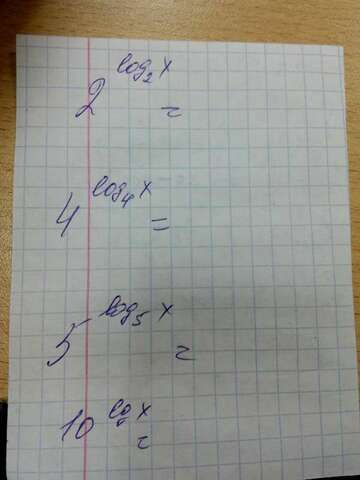 2^log₂x =
4^log₄x =
5^log₅x =
10^lg x =